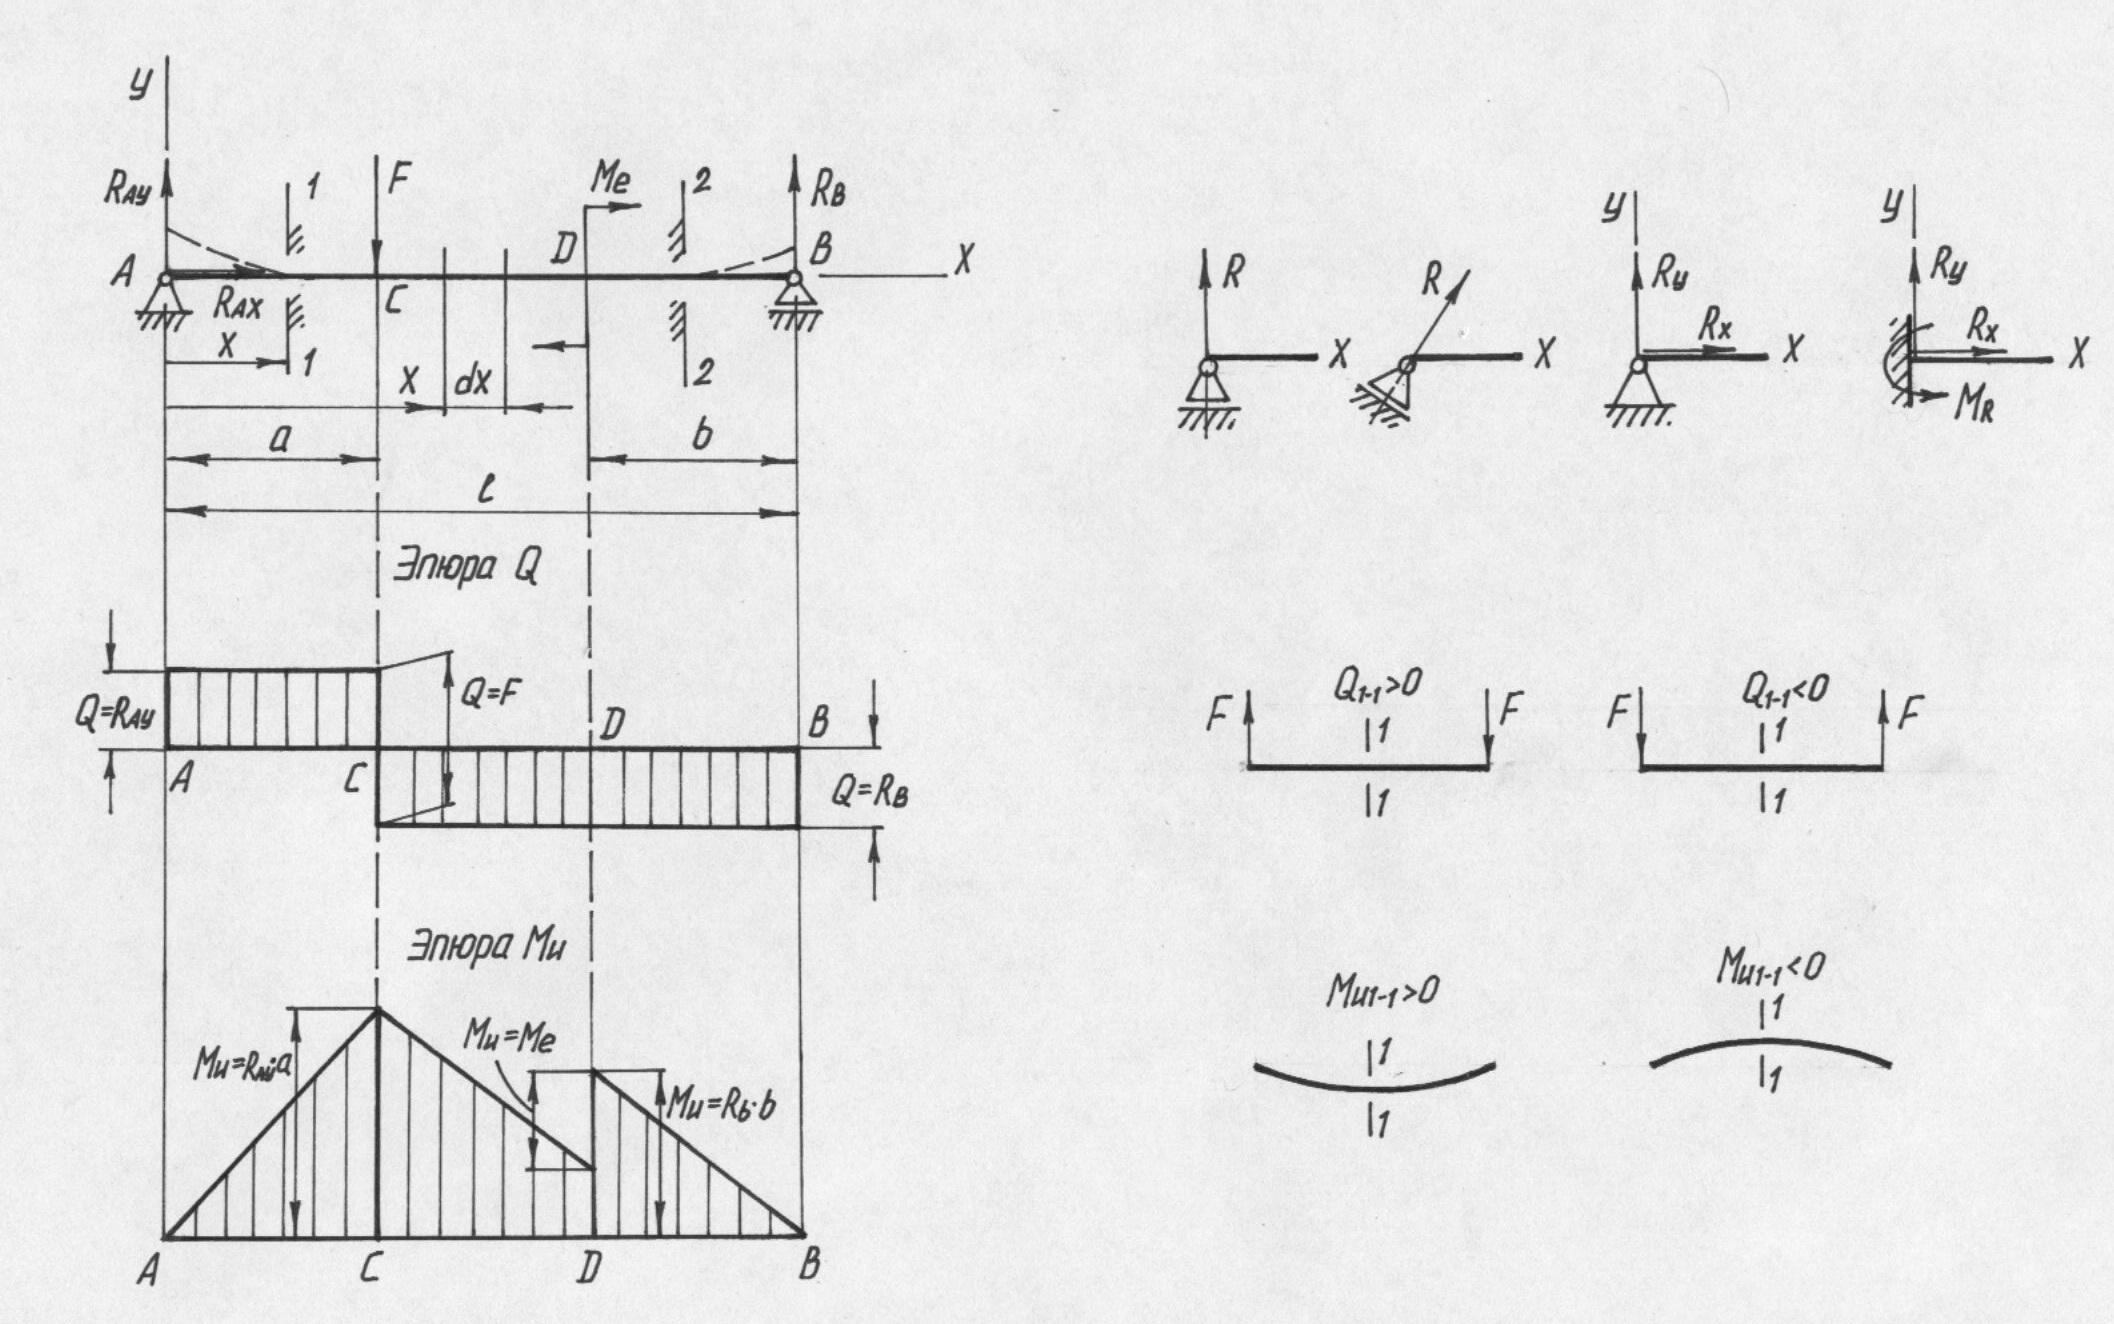 y
RAy
1
F
Me
2
RB
A
RAX
C
D
B
X
X
1
X
dX
2
a
b
l
R
X
R
X
y
Ry
Rx
X
y
Ry
Rx
X
MR
Эпюра Q
Q=RAy
Q=F
D
B
A
C
Q=RB
Q1-1>0
F
1
F
1
Q1-1<0
F
1
F
1
Эпюра Mи
Mи=RAy·a
Mи=Me
Mи=Rб·b
A
C
D
B
Mи1-1>0
1
1
Mи1-1<0
1
1